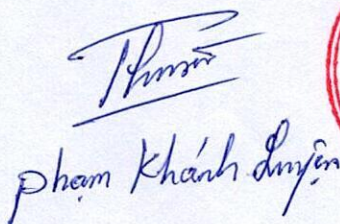 Phạm Khánh Luyện